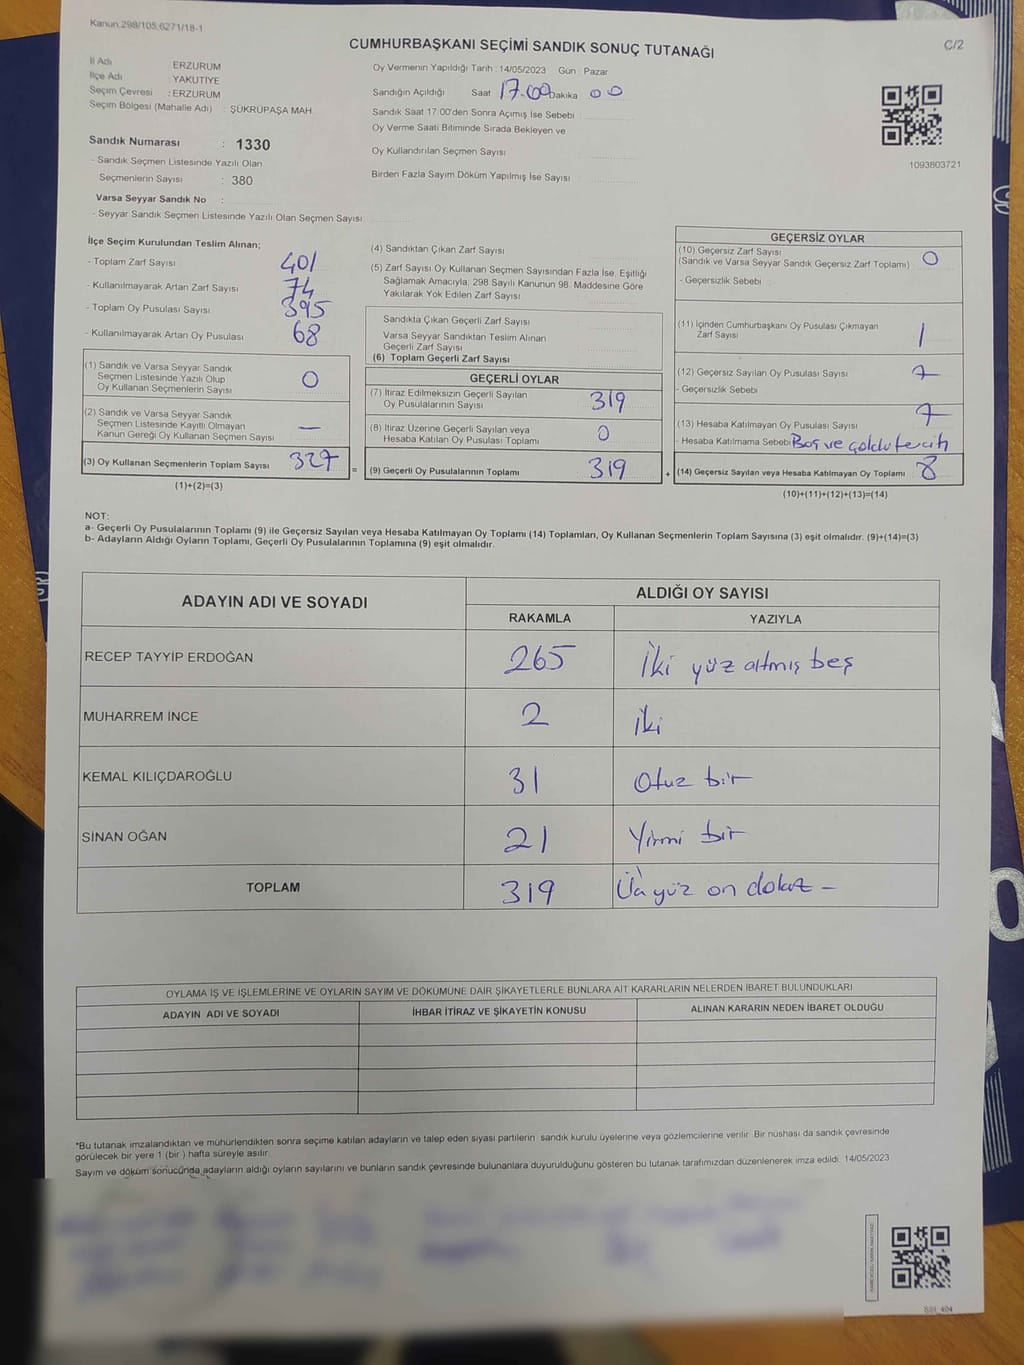 Kanun:298/105;6271/18-1
C/2
CUMHURBAŞKANI SEÇİMİ SANDIK SONUÇ TUTANAĞI
İl Adı ERZURUM
İlçe Adı YAKUTİYE
Seçim Çevresi : ERZURUM
Seçim Bölgesi (Mahalle Adı) ŞÜKRÜPAŞA MAH.
Oy Vermenin Yapıldığı Tarih : 14/05/2023 Gün : Pazar
Sandığın Açıldığı Saat 17.00 Dakika 00
Sandık Saat 17:00'den Sonra Açımış İse Sebebi
Oy Verme Saati Bitiminde Sırada Bekleyen ve
Oy Kullandırılan Seçmen Sayısı
Birden Fazla Sayım Döküm Yapılmış İse Sayısı
1093803721
Sandık Numarası : 1330
- Sandık Seçmen Listesinde Yazılı Olan
Seçmenlerin Sayısı : 380
Varsa Seyyar Sandık No :
- Seyyar Sandık Seçmen Listesinde Yazılı Olan Seçmen Sayısı:
İlçe Seçim Kurulundan Teslim Alınan;
- Toplam Zarf Sayısı 401
- Kullanılmayarak Artan Zarf Sayısı 74
- Toplam Oy Pusulası Sayısı 395
- Kullanılmayarak Artan Oy Pusulası 68
(1) Sandık ve Varsa Seyyar Sandık
Seçmen Listesinde Yazılı Olup
Oy Kullanan Seçmenlerin Sayısı 0
(2) Sandık ve Varsa Seyyar Sandık
Seçmen Listesinde Kayıtlı Olmayan
Kanun Gereği Oy Kullanan Seçmen Sayısı —
(3) Oy Kullanan Seçmenlerin Toplam Sayısı 327 =
(1)+(2)=(3)
(4) Sandıktan Çıkan Zarf Sayısı
(5) Zarf Sayısı Oy Kullanan Seçmen Sayısından Fazla İse, Eşitliği
Sağlamak Amacıyla; 298 Sayılı Kanunun 98. Maddesine Göre
Yakılarak Yok Edilen Zarf Sayısı
Sandıkta Çıkan Geçerli Zarf Sayısı
Varsa Seyyar Sandıktan Teslim Alınan
Geçerli Zarf Sayısı
(6) Toplam Geçerli Zarf Sayısı
GEÇERLİ OYLAR
(7) İtiraz Edilmeksizin Geçerli Sayılan
Oy Pusulalarının Sayısı 319
(8) İtiraz Üzerine Geçerli Sayılan veya
Hesaba Katılan Oy Pusulası Toplamı 0
(9) Geçerli Oy Pusulalarının Toplamı 319 +
GEÇERSİZ OYLAR
(10) Geçersiz Zarf Sayısı
(Sandık ve Varsa Seyyar Sandık Geçersiz Zarf Toplamı) 0
- Geçersizlik Sebebi
(11) İçinden Cumhurbaşkanı Oy Pusulası Çıkmayan
Zarf Sayısı 1
(12) Geçersiz Sayılan Oy Pusulası Sayısı 7
- Geçersizlik Sebebi
(13) Hesaba Katılmayan Oy Pusulası Sayısı 7
- Hesaba Katılmama Sebebi Boş ve çoklu tercih
(14) Geçersiz Sayılan veya Hesaba Katılmayan Oy Toplamı 8
(10)+(11)+(12)+(13)=(14)
NOT:
a- Geçerli Oy Pusulalarının Toplamı (9) ile Geçersiz Sayılan veya Hesaba Katılmayan Oy Toplamı (14) Toplamları, Oy Kullanan Seçmenlerin Toplam Sayısına (3) eşit olmalıdır. (9)+(14)=(3)
b- Adayların Aldığı Oyların Toplamı, Geçerli Oy Pusulalarının Toplamına (9) eşit olmalıdır.
ADAYIN ADI VE SOYADI
ALDIĞI OY SAYISI
RAKAMLA YAZIYLA
RECEP TAYYİP ERDOĞAN 265 İki yüz altmış beş
MUHARREM İNCE 2 iki
KEMAL KILIÇDAROĞLU 31 Otuz bir
SİNAN OĞAN 21 Yirmi bir
TOPLAM 319 Üç yüz on dokuz -
OYLAMA İŞ VE İŞLEMLERİNE VE OYLARIN SAYIM VE DÖKÜMÜNE DAİR ŞİKAYETLERLE BUNLARA AİT KARARLARIN NELERDEN İBARET BULUNDUKLARI
ADAYIN ADI VE SOYADI İHBAR İTİRAZ VE ŞİKAYETİN KONUSU ALINAN KARARIN NEDEN İBARET OLDUĞU
*Bu tutanak imzalandıktan ve mühürlendikten sonra seçime katılan adayların ve talep eden siyasi partilerin sandık kurulu üyelerine veya gözlemcilerine verilir. Bir nüshası da sandık çevresinde
görülecek bir yere 1 (bir ) hafta süreyle asılır.
Sayım ve döküm sonucunda adayların aldığı oyların sayılarını ve bunların sandık çevresinde bulunanlara duyurulduğunu gösteren bu tutanak tarafımızdan düzenlenerek imza edildi. 14/05/2023